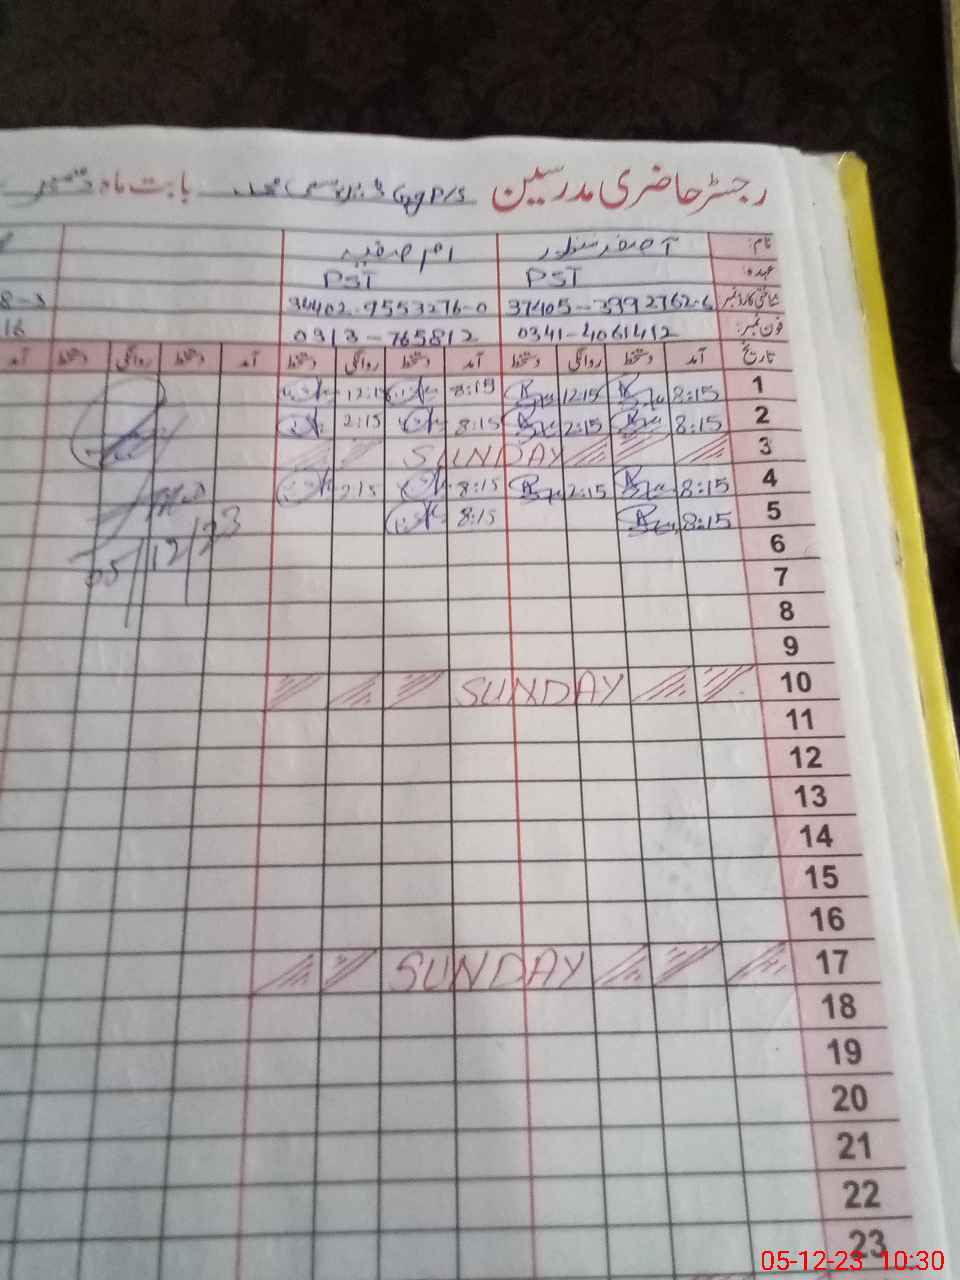 رجسٹر حاضری مدرسین GGP/S بابت ماہ دسمبر
نام:
عہدہ: PST PST
شناختی کارڈ نمبر 37405-3992762-6 34402-9553276-0 8-3
فون نمبر: 0341-4061412 0313-765812 16
تاریخ آمد دستخط روانگی دستخط آمد دستخط روانگی دستخط آمد دستخط روانگی دستخط آمد
1 8:15 12:15 8:15 12:15
2 8:15 2:15 8:15 2:15
3 SUNDAY
4 8:15 2:15 8:15 2:15
5 8:15 8:15
05/12/23
6
7
8
9
10 SUNDAY
11
12
13
14
15
16
17 SUNDAY
18
19
20
21
22
23
05-12-23 10:30